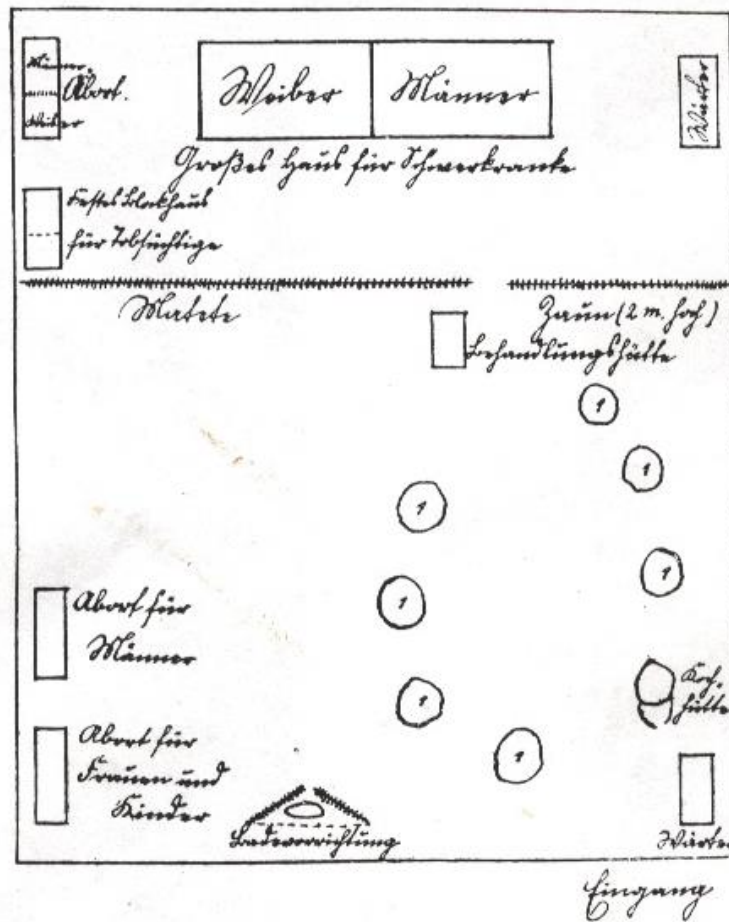 Männer
Abort.
Weiber
Weiber
Männer
Wärter
Großes Haus für Schwerkranke
Festes Blockhaus
für Tobsüchtige
Matete
Zaun (2 m. hoch)
Behandlungshütte
1
1
1
1
1
1
1
Abort für
Männer
Koch-
hütte
Abort für
Frauen und
Kinder
Badevorrichtung
Wärter
Eingang